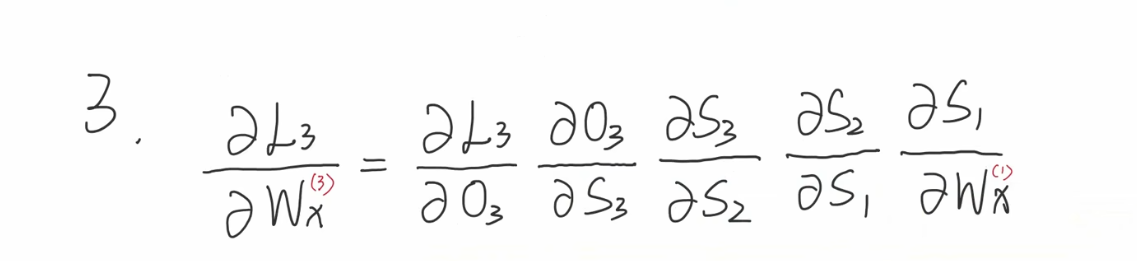 3. ∂L₃/∂Wₓ⁽³⁾ = ∂L₃/∂O₃ ∂O₃/∂S₃ ∂S₃/∂S₂ ∂S₂/∂S₁ ∂S₁/∂Wₓ⁽¹⁾